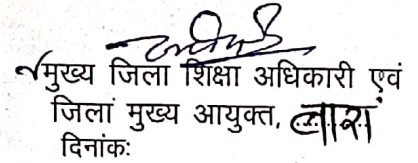 मुख्य जिला शिक्षा अधिकारी एवं
जिला मुख्य आयुक्त, बारां
दिनांकः